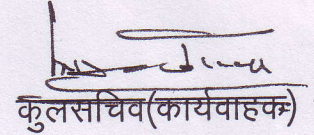 कुलसचिव(कार्यवाहक)